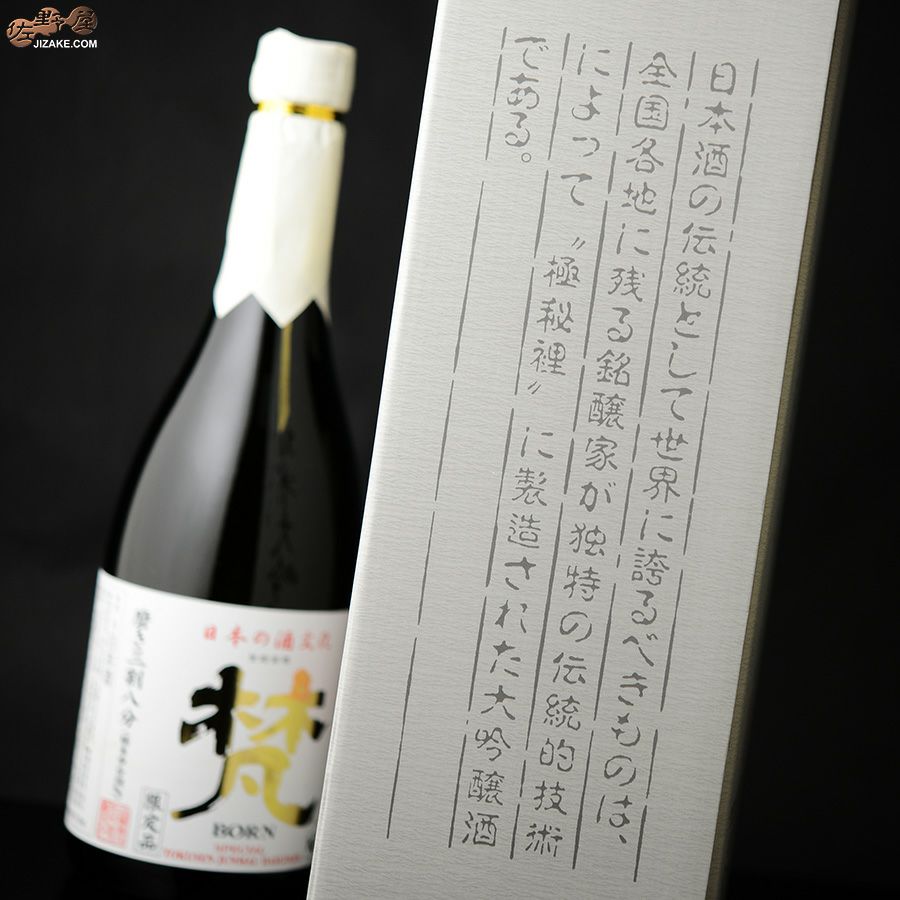 佐野屋
JIZAKE.COM
日本酒の伝統として世界に誇るべきものは、
全国各地に残る銘醸家が独特の伝統的技術
によって〝極秘裡〟に製造された大吟醸酒
である。
日本の酒文化
磨き三割八分
梵
BORN
限定品